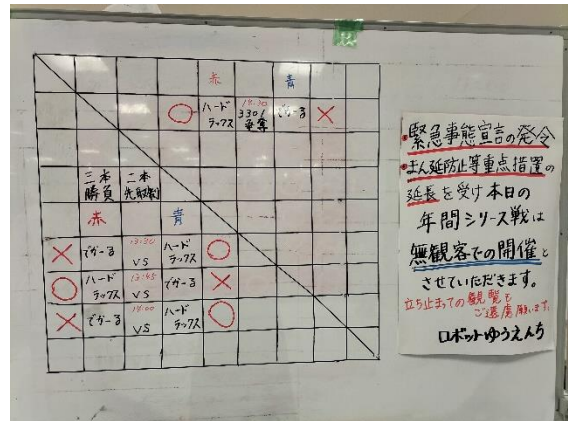 赤 青
○ ハードラックス 14:30 330g争奪 でがーる ×
三本勝負 二本先取制
赤 青
× でがーる 13:30 vs ハードラックス ○
○ ハードラックス 13:45 vs でがーる ×
× でがーる 14:00 vs ハードラックス ○
・緊急事態宣言の発令
・まん延防止等重点措置の
延長を受け本日の
年間シリーズ戦は
無観客での開催と
させていただきます。
立ち止まっての観覧も
ご遠慮願います。
ロボットゆうえんち